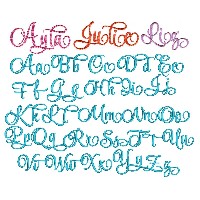 Ayla Justice Liag
Aa Bb Cc Dd Ee
Ff Gg Hh Ii Jj
Kk Ll Mm Nn Oo
Pp Qq Rr Ss Tt Uu
Vv Ww Xx Yy Zz